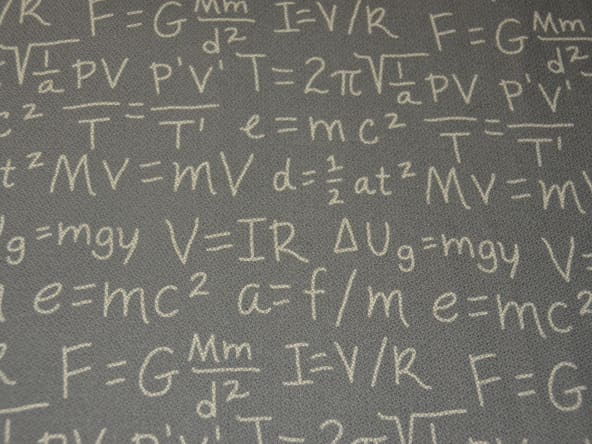 /R F=G Mm/d² I=V/R F=G Mm/d²
√1/a PV/T=P'V'/T' T=2π√1/a PV/T=P'V'/T'
c² e=mc²
t² MV=mV d=½at² MV=mV
g=mgy V=IR ΔUg=mgy V=
e=mc² a=f/m e=mc²
F=G Mm/d² I=V/R F=G
PV P'V' T=2π√1 PV P'V'